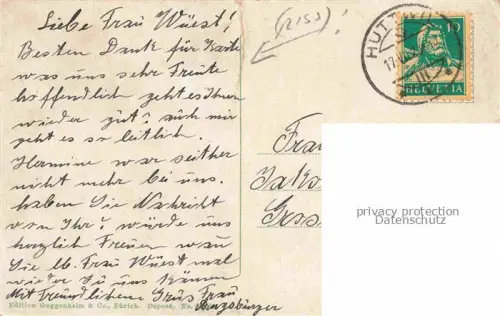 Liebe Frau Wüest!
Besten Dank für Karte
was uns sehr Freute
hoffendlich geht es Ihnen
wieder gut? auch mir
geht es so leitlich.
Hermine war seither
nicht mehr bei uns.
haben Sie Nachricht
von Ihr? würde uns
herzlich Freuen wan
Sie lb. Frau Wüest mal
wieder zu uns kämen
Mit Freundlichene Grüs Frau
Edition Guggenheim & Co., Zürich. Déposé, No.
(RISS)!
HUTT
17.
III
10
HELVETIA
Frau
Jako
Gross
privacy protection
Datenschutz